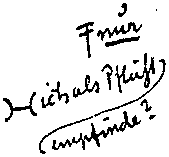 F nur
(ich als Pflicht
empfinde?